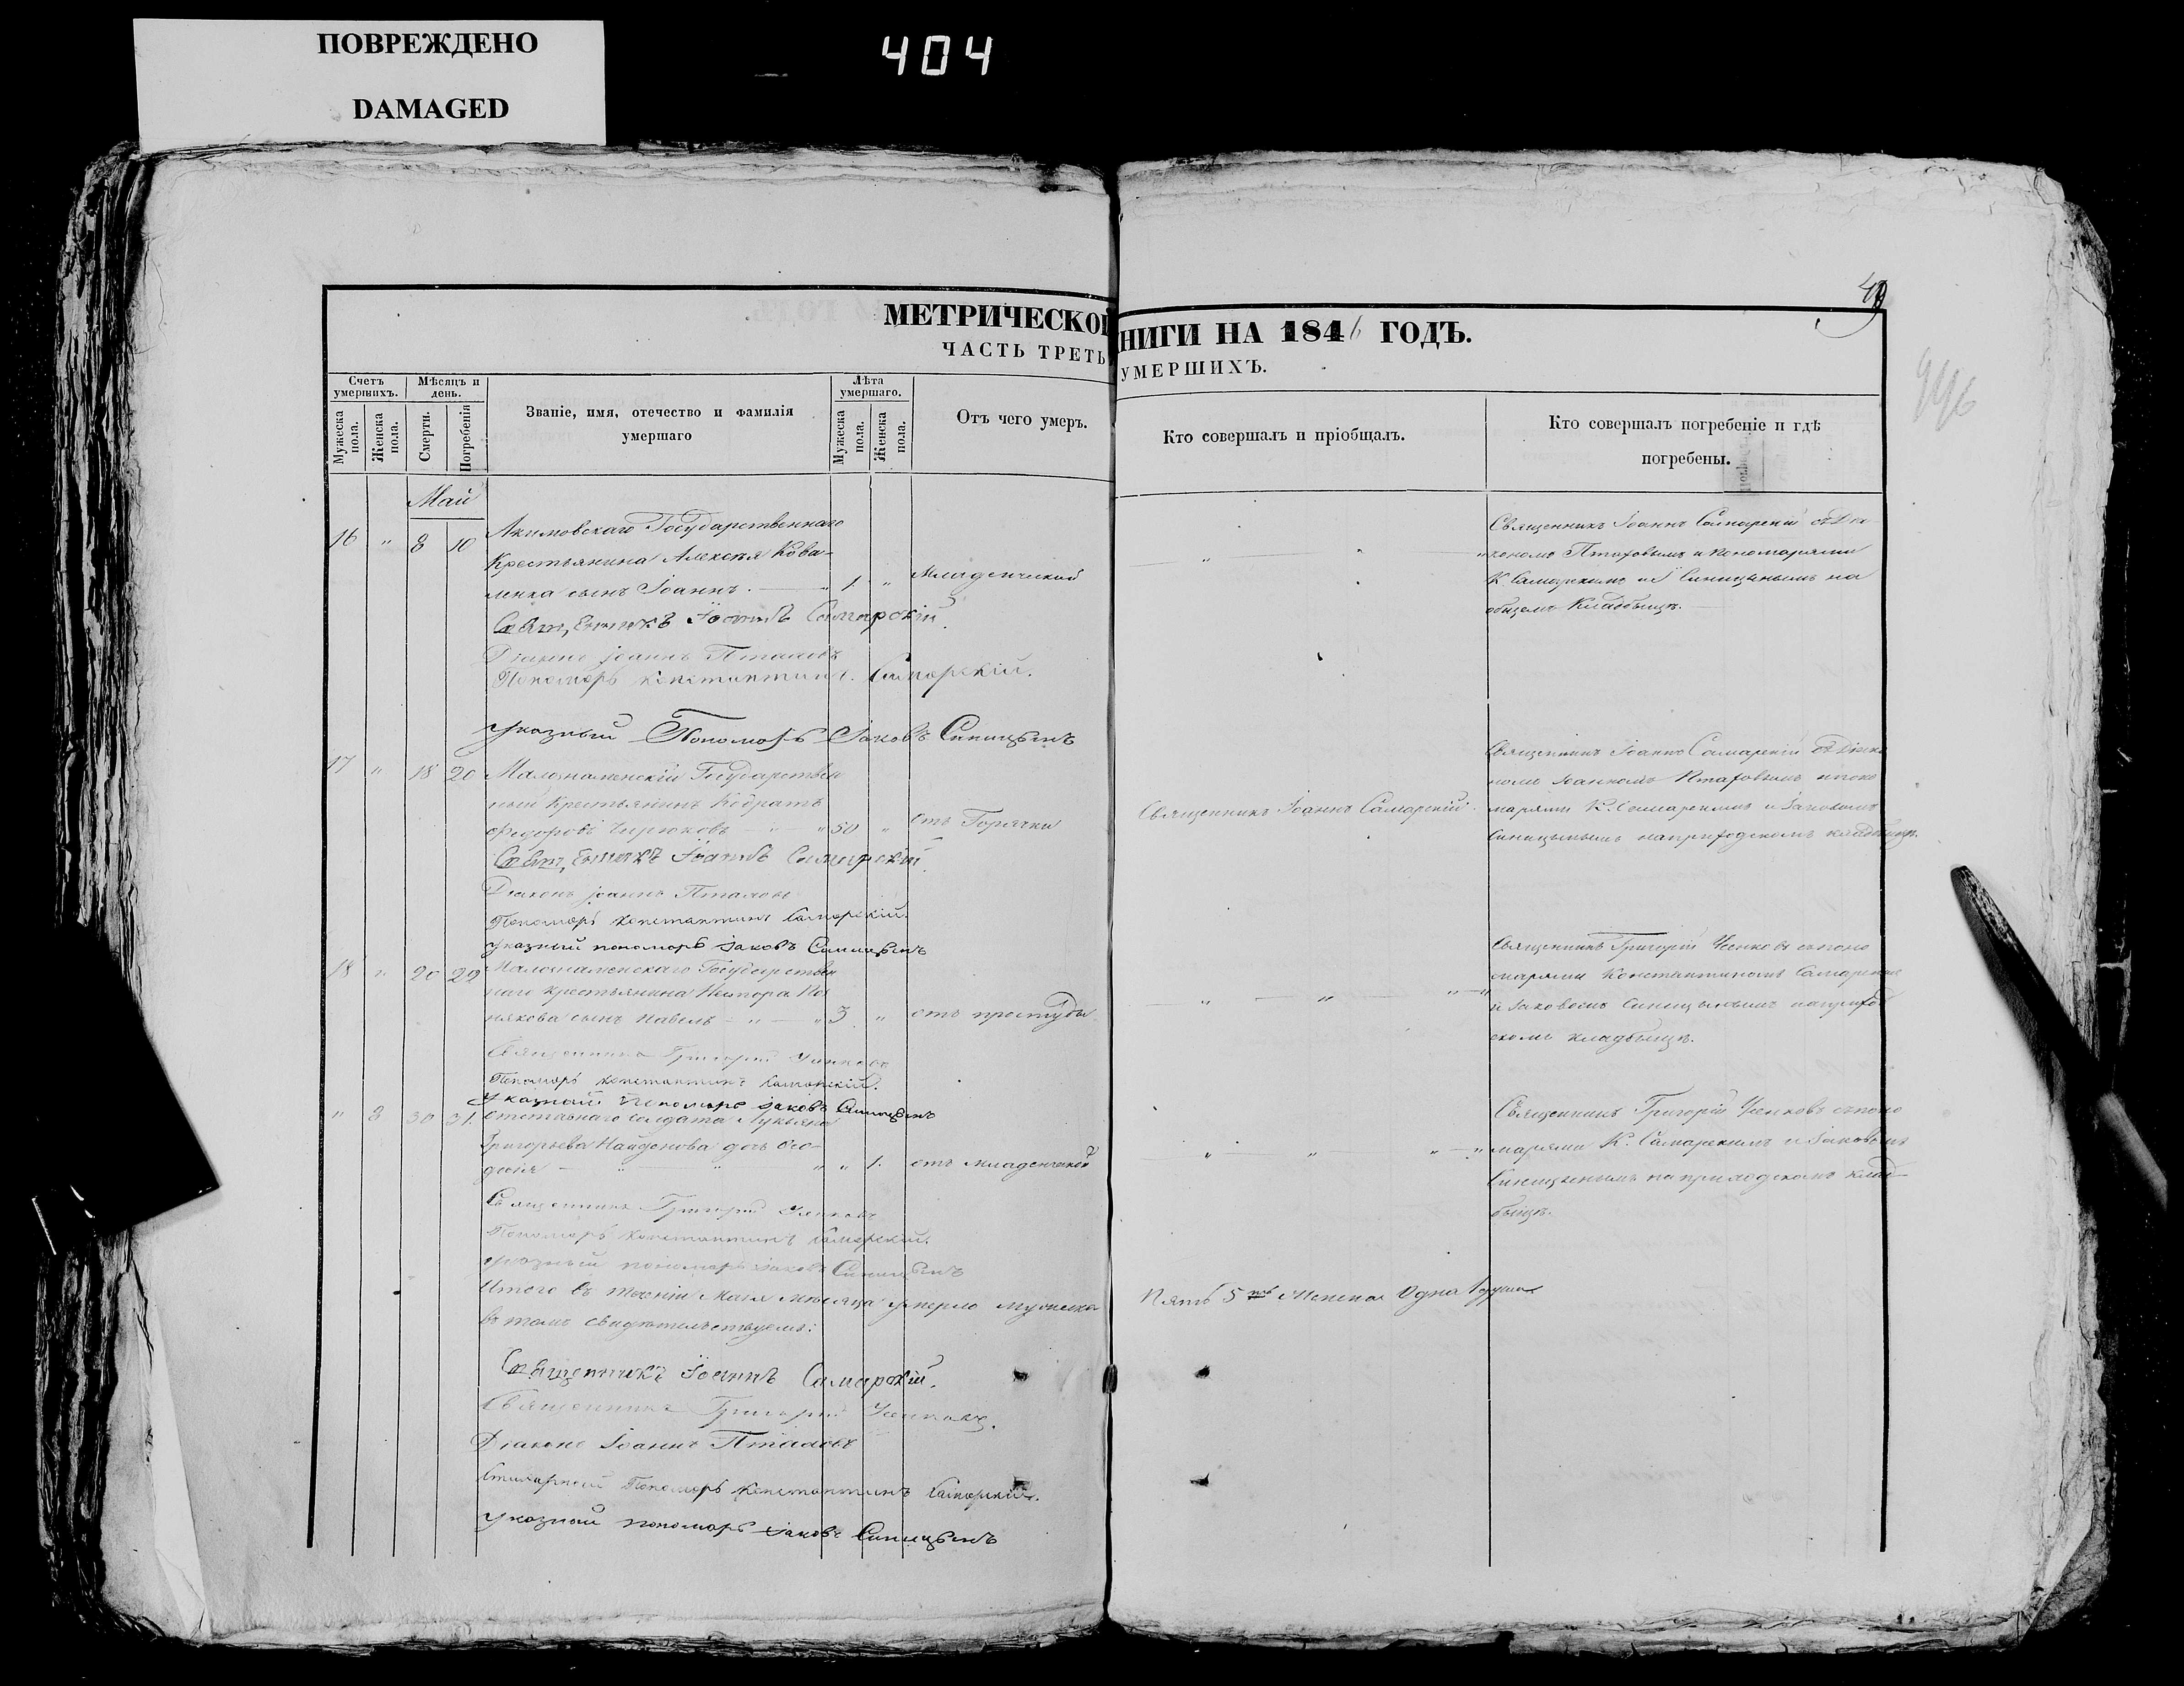 ПОВРЕЖДЕНО
DAMAGED
404
49
446
МЕТРИЧЕСКОЙ
НИГИ НА 1846 ГОДЪ.
ЧАСТЬ ТРЕТЬ
УМЕРШИХЪ.
Счетъ умершихъ.
Мужеска пола.
Женска пола.
Мѣсяцъ и день.
Смерти.
Погребенія
Званіе, имя, отечество и фамилія
умершаго
Лѣта умершаго.
Мужеска пола.
Женска пола.
Отъ чего умеръ.
Кто совершалъ и пріобщалъ.
Кто совершалъ погребеніе и гдѣ
погребены.
Май
16 " 8 10 Акимовскаго Государственнаго
Крестьянина Алексѣя Кова-
ленка сынъ Іоаннъ. 1 " Младенческой
Священникъ Іоаннъ Самарскій съ Діа-
кономъ Птаховымъ и пономарями
К. Самарскимъ и Синицынымъ на
общемъ Кладбыщѣ.
Священникъ Іоаннъ Самарскій.
Діаконъ Іоаннъ Птаховъ
Пономарь Константинъ Самарскій.
Указный Пономарь Іаковъ Синицынъ
17 " 18 20 Государствен
ный Крестьянинъ Кодратъ
Федоровъ " 50 " отъ Горячки
Священникъ Іоаннъ Самарскій.
Священникъ Іоаннъ Самарскій съ Діако
номъ Іоанномъ Птаховымъ и поно
марями К. Самарскимъ и Іаковомъ
Синицынымъ на приходскомъ кладбыщѣ.
Священникъ Іоаннъ Самарскій.
Діаконъ Іоаннъ Птаховъ
Пономарь Константинъ Самарскій.
Указный пономарь Іаковъ Синицынъ
18 " 20 22 Государствен
наго крестьянина Нестора Поз
някова сынъ Павелъ " 3 " отъ простуды
Священникъ Григорій съ поно
марями Константиномъ Самарскимъ
и Іаковомъ Синицынымъ на приход
скомъ кладбыщѣ.
Священникъ Григорій
Пономарь Константинъ Самарскій.
Указный Пономарь Іаковъ Синицынъ
" 3 30 31. отставнаго солдата Лукьяна
Григорьева Найденова дочь Фео-
досія " " 1. отъ младенческой
Священникъ Григорій съ поно
марями К. Самарскимъ и Іаковомъ
Синицынымъ на приходскомъ клад-
быщѣ.
Священникъ Григорій
Пономарь Константинъ Самарскій.
Указный пономарь Іаковъ Синицынъ
Итого въ теченіи Маія мѣсяца умерло мужеска
Пять 5 женска Одна 1 душа
въ томъ свидѣтельствуемъ:
Священникъ Іоаннъ Самарскій.
Священникъ Григорій
Діаконъ Іоаннъ Птаховъ
Стихарный Пономарь Константинъ Самарскій.
Указный пономарь Іаковъ Синицынъ